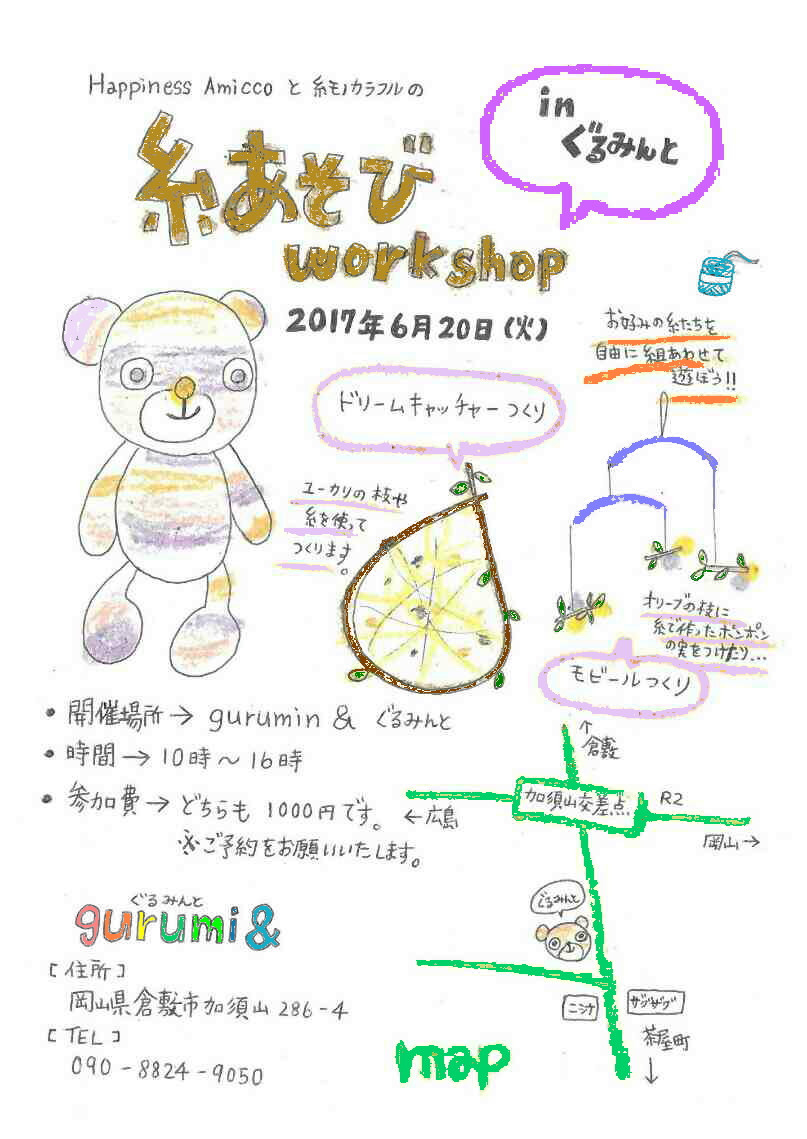 Happiness Amicco と 糸モノカラフルの
in
ぐるみんと
糸あそび
workshop
2017年6月20日(火)
お好みの糸たちを
自由に組あわせて
遊ぼう!!
ドリームキャッチャーつくり
ユーカリの枝や
糸を使って
つくります。
オリーブの枝に
糸で作ったポンポン
の実をつけたり...
モビールつくり
・開催場所→ gurumin & ぐるみんと
・時間→10時〜16時
・参加費→どちらも 1000円です。
※ご予約をお願いいたします。
↑
倉敷
加須山交差点
R2
←広島
岡山→
ぐるみんと
ニシナ
ザグザグ
茶屋町
↓
map
ぐるみんと
gurumi&
[住所]
岡山県倉敷市加須山 286-4
[TEL]
090-8824-9050